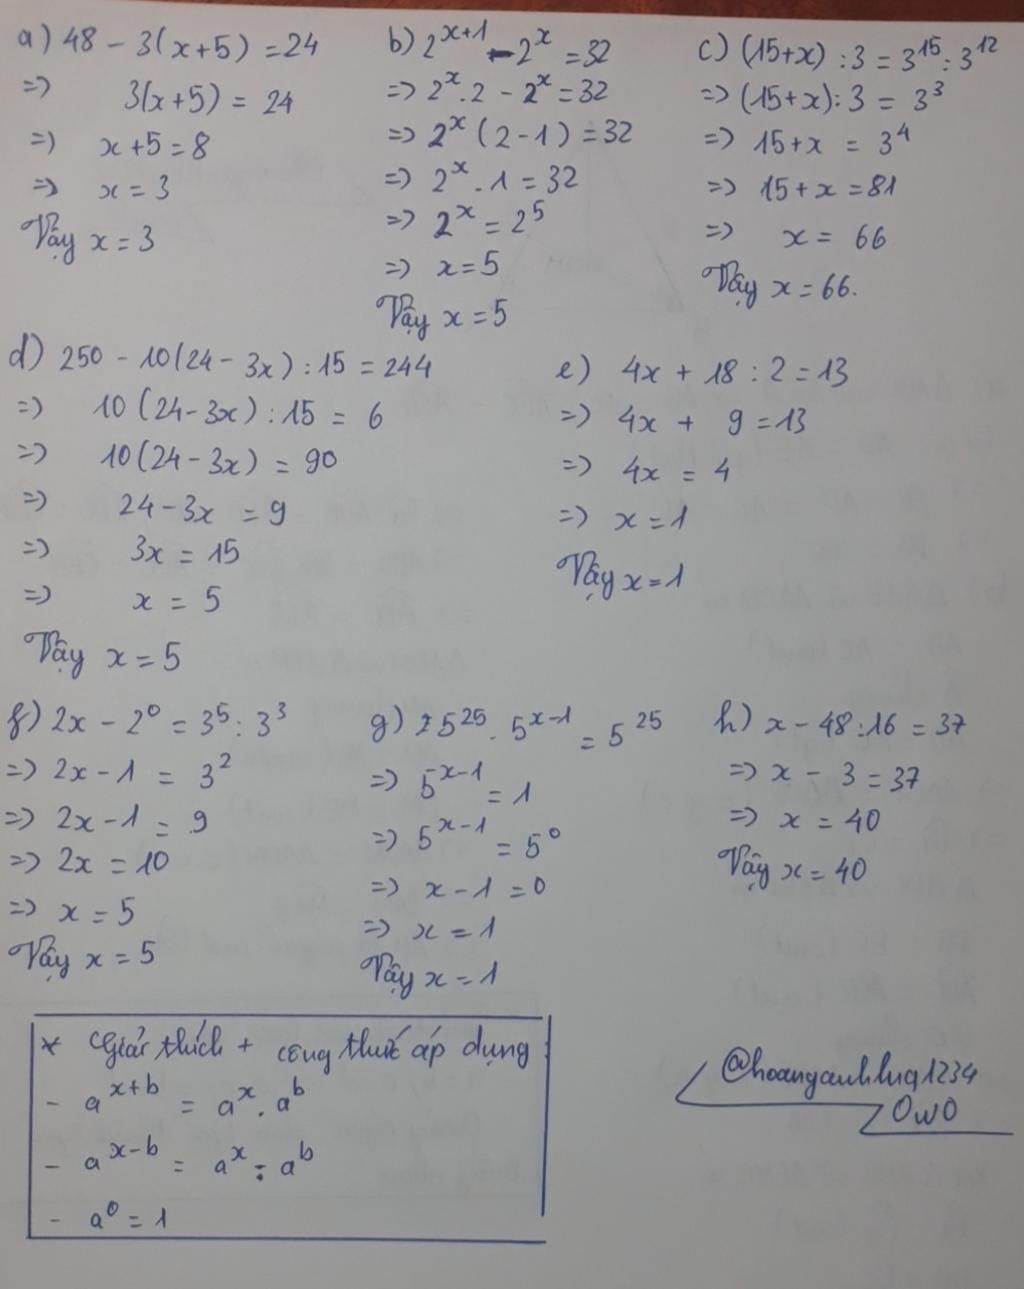 a) 48 - 3(x+5) = 24
=> 3(x+5) = 24
=> x+5 = 8
=> x = 3
Vậy x = 3
b) 2^{x+1} - 2^x = 32
=> 2^x . 2 - 2^x = 32
=> 2^x (2-1) = 32
=> 2^x . 1 = 32
=> 2^x = 2^5
=> x = 5
Vậy x = 5
c) (15+x) : 3 = 3^{15} : 3^{12}
=> (15+x) : 3 = 3^3
=> 15+x = 3^4
=> 15+x = 81
=> x = 66
Vậy x = 66.
d) 250 - 10(24 - 3x) : 15 = 244
=> 10(24-3x) : 15 = 6
=> 10(24-3x) = 90
=> 24-3x = 9
=> 3x = 15
=> x = 5
Vậy x = 5
e) 4x + 18 : 2 = 13
=> 4x + 9 = 13
=> 4x = 4
=> x = 1
Vậy x = 1
f) 2x - 2^0 = 3^5 : 3^3
=> 2x - 1 = 3^2
=> 2x - 1 = 9
=> 2x = 10
=> x = 5
Vậy x = 5
g) 5^{25} . 5^{x-1} = 5^{25}
=> 5^{x-1} = 1
=> 5^{x-1} = 5^0
=> x - 1 = 0
=> x = 1
Vậy x = 1
h) x - 48 : 16 = 37
=> x - 3 = 37
=> x = 40
Vậy x = 40
* Giải thích + công thức áp dụng :
- a^{x+b} = a^x . a^b
- a^{x-b} = a^x : a^b
- a^0 = 1
@hoanganhluq1234
OwO